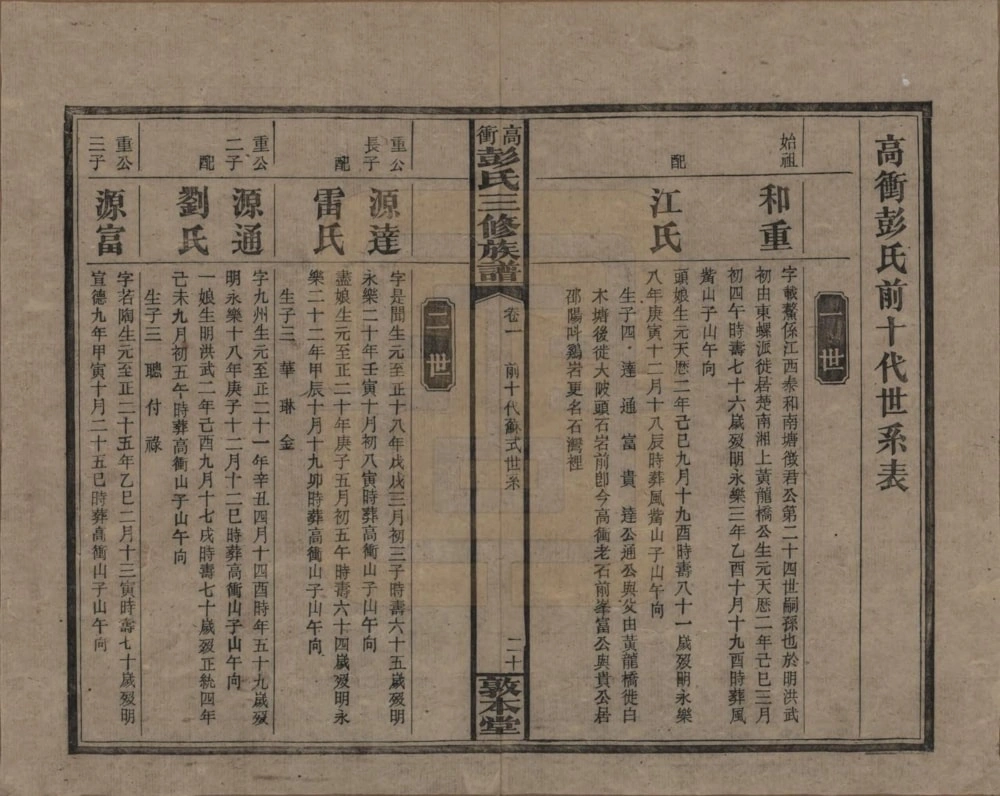 高衝彭氏前十代世系表
一世
始祖
和重
字載鰲係江西泰和南塘徵君公第二十四世嗣孫也於明洪武
初由東螺派徙居楚南湘上黃龍橋公生元天厯二年己巳三月
初四午時壽七十六歲歿明永樂三年乙酉十月十九酉時葬風
觜山子山午向
配
江氏
頭娘生元天厯二年己巳九月十九酉時壽八十一歲歿明永樂
八年庚寅十二月十八辰時葬風觜山子山午向
生子四 達 通 富 貴 達公通公與父由黃龍橋徙白
木塘後徙大陂頭石岩前卽今高衝老石前峯富公與貴公居
邵陽呌鷄岩更名石灣裡
高衝彭氏三修族譜
卷一 前十代蘇式世系
二十
敦本堂
二世
重公長子
源達
字是閏生元至正十八年戊戌三月初三子時壽六十五歲歿明
永樂二十年壬寅十月初八寅時葬高衝山子山午向
配
雷氏
盡娘生元至正二十年庚子五月初五午時壽六十四歲歿明永
樂二十二年甲辰十月十九卯時葬高衝山子山午向
生子三 華 琳 金
重公二子
源通
字九州生元至正二十一年辛丑四月十四酉時年五十九歲歿
明永樂十八年庚子十二月十二巳時葬高衝山子山午向
配
劉氏
一娘生明洪武二年己酉九月十七戌時壽七十歲歿正統四年
己未九月初五午時葬高衝山子山午向
生子三 聰 付 祿
重公三子
源富
字若陶生元至正二十五年乙巳二月十三寅時壽七十歲歿明
宣德九年甲寅十月二十五巳時葬高衝山子山午向